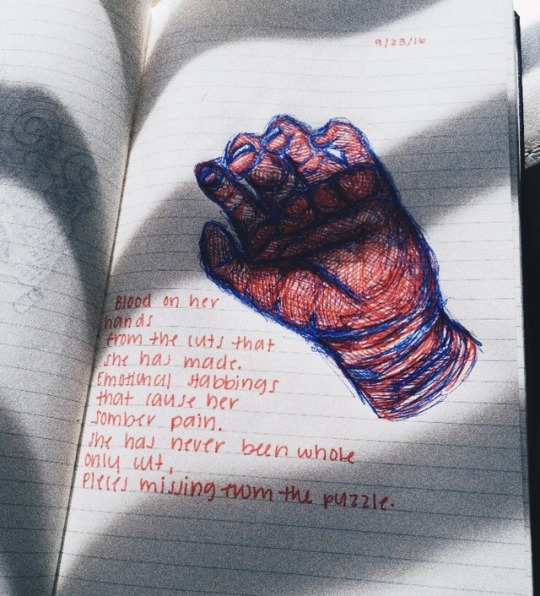 9/23/16
Blood on her
hands
from the cuts that
she has made.
Emotional stabbings
that cause her
somber pain.
she has never been whole
only cut,
Pieces missing from the puzzle.